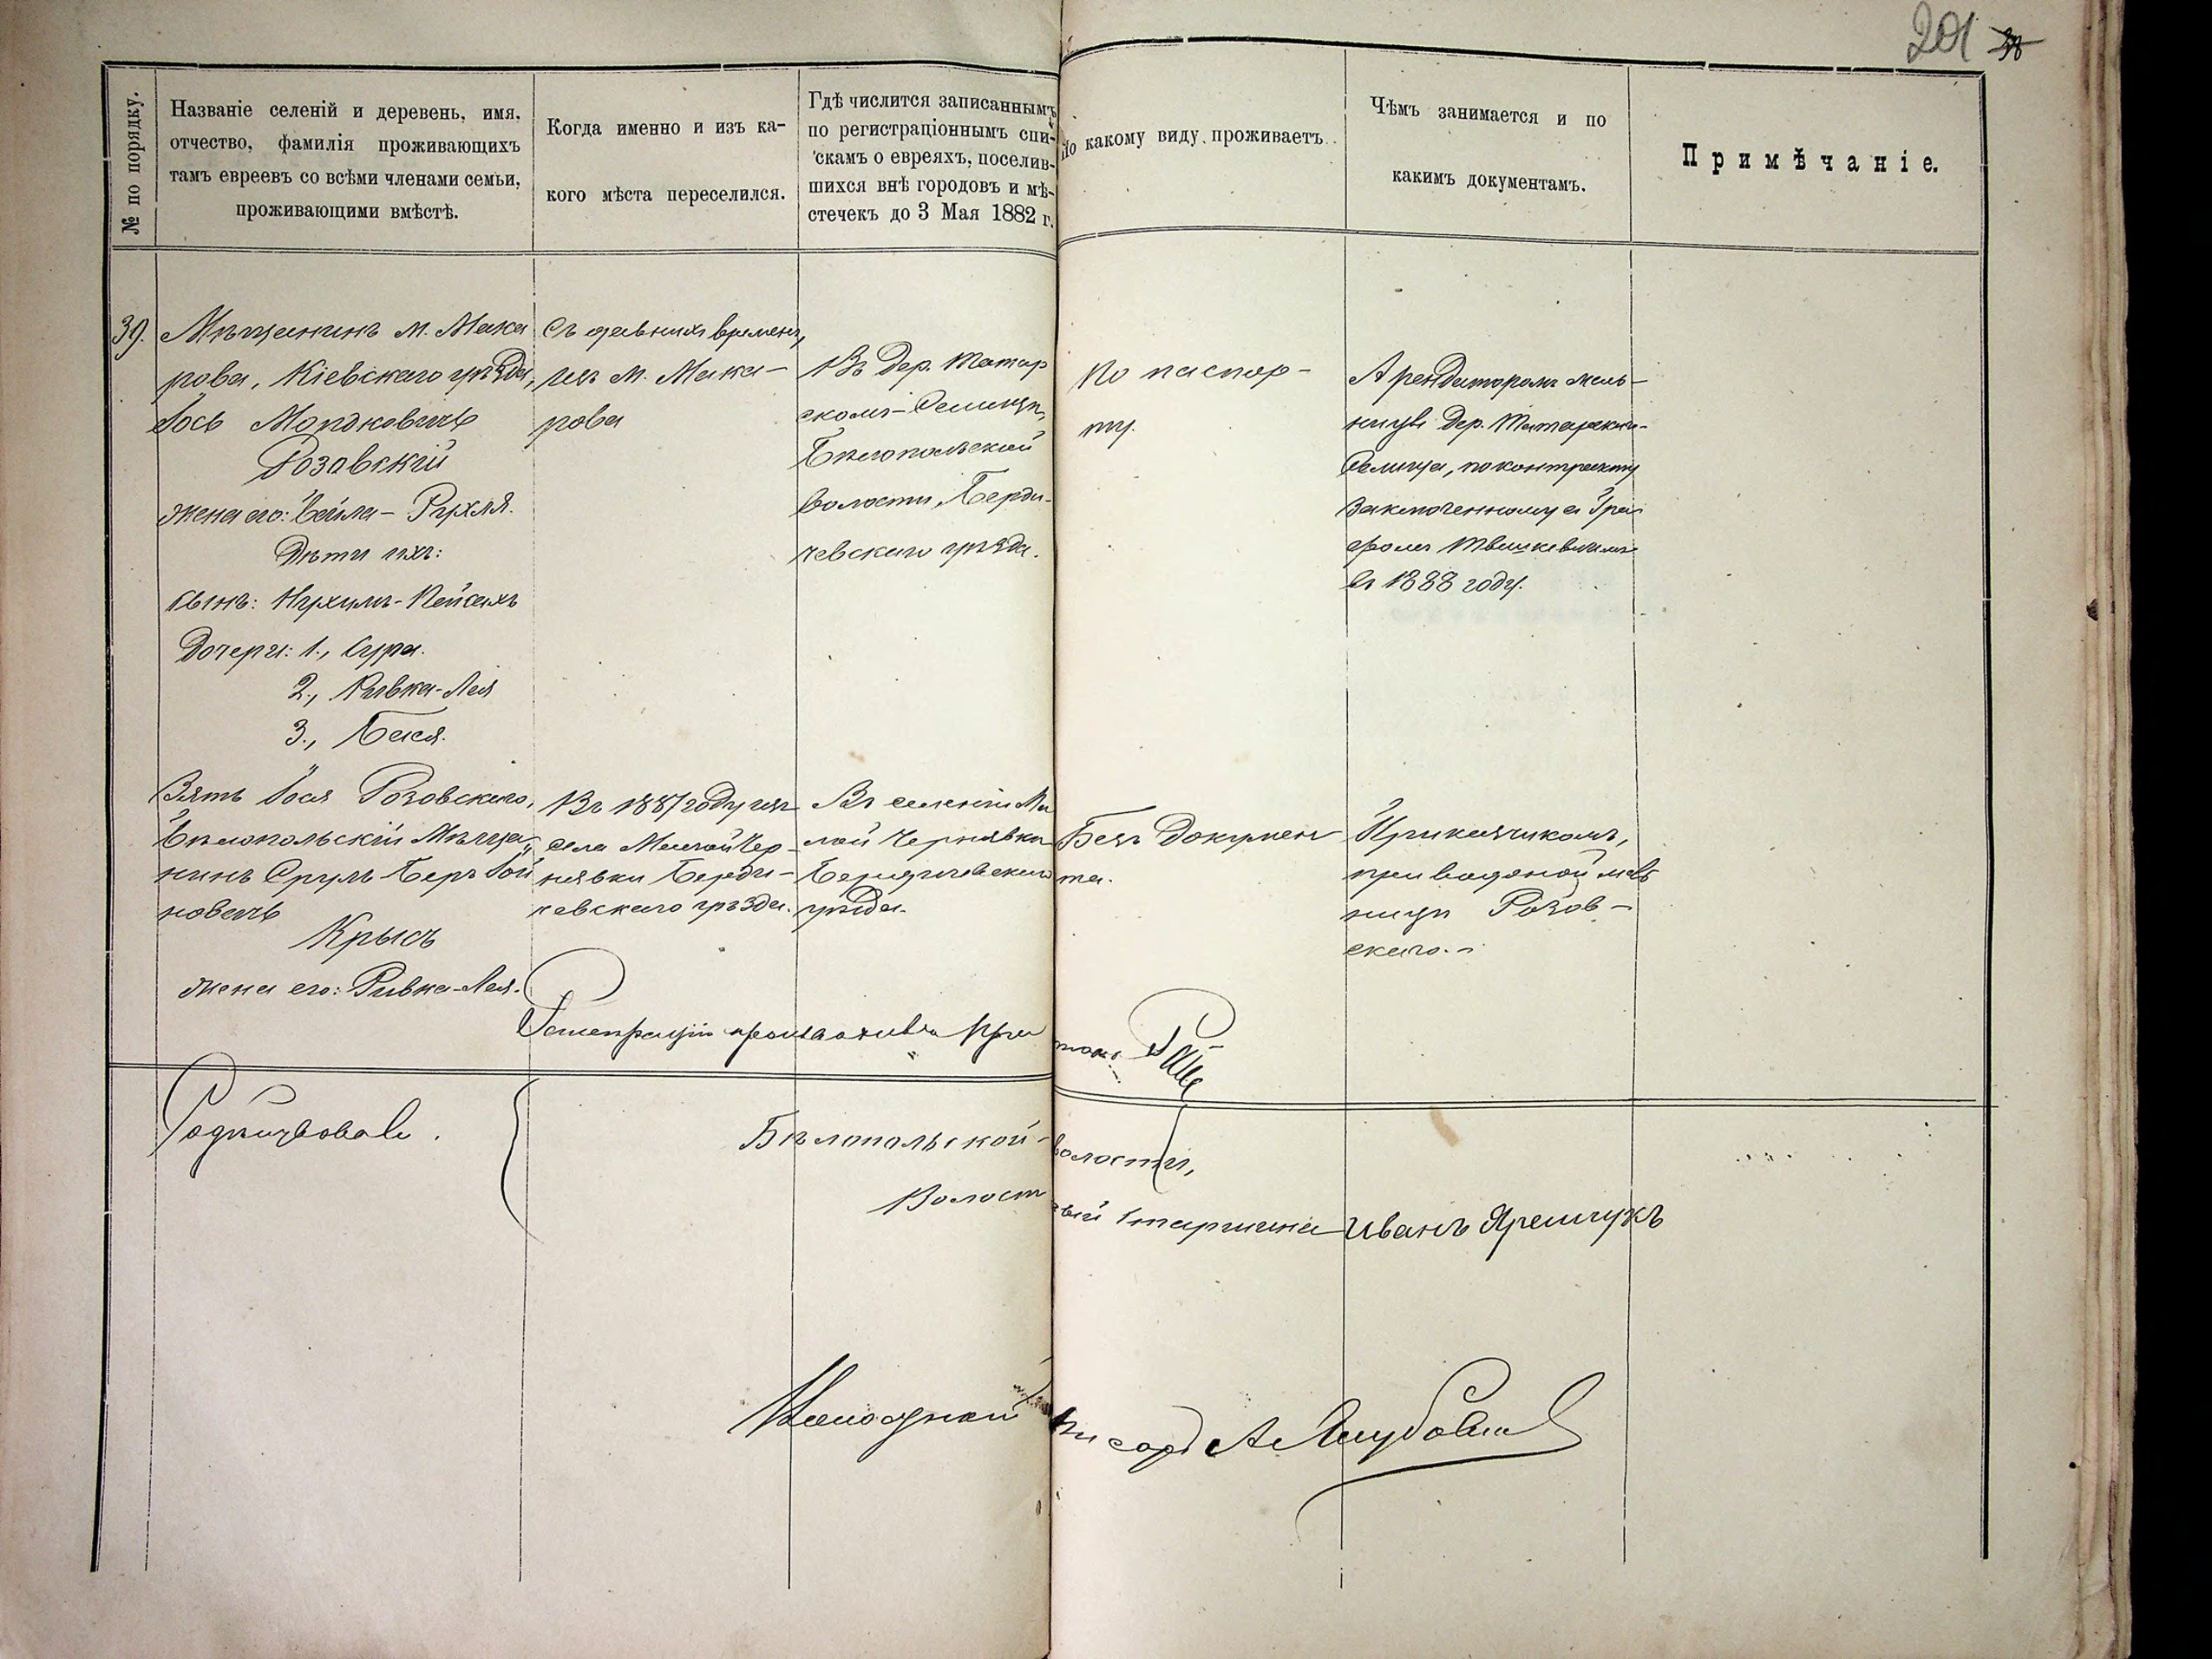 201
№ по порядку.
Названіе селеній и деревень, имя,
отчество, фамилія проживающихъ
тамъ евреевъ со всѣми членами семьи,
проживающими вмѣстѣ.
Когда именно и изъ ка-
кого мѣста переселился.
Гдѣ числится записаннымъ
по регистраціоннымъ спи-
скамъ о евреяхъ, поселив-
шихся внѣ городовъ и мѣ-
стечекъ до 3 Мая 1882 г.
По какому виду проживаетъ.
Чѣмъ занимается и по
какимъ документамъ.
Примѣчаніе.
39.
Мѣщанинъ м. Мака
рова, Кіевскаго уѣзда,
Іось Мордковичъ
Розовскій
жена его: Бейла-Рухля.
Дѣти ихъ:
сынъ: Нухимъ-Пейсахъ
Дочери: 1., Сура.
2., Ривка-Лея
3., Бася.
Съ давнихъ временъ,
изъ м. Мака-
рова
Въ Дер. Татар
скомъ-Селищѣ,
Бѣлопольской
волости, Берди-
чевскаго уѣзда.
По паспор-
ту.
Арендаторомъ мель-
ницы Дер. Татарскаго-
Селища, по контракту
заключенному съ Гра
фомъ Тышкевичемъ
въ 1888 году.
Зять Іося Розовскаго,
Бѣлопольскій Мѣща-
нинъ Сруль Беръ Іой
новичъ
Крысъ
жена его: Ривка-Лея.
Въ 1887 году изъ
села Малой Чер-
нявки Берди-
чевскаго уѣзда.
Въ селеніи Ма
лой Чернявки
Бердичевскаго
уѣзда.
Безъ Докумен
та.
Прикащикомъ,
при водяной мель
ницѣ Розов-
скаго.
Регистрацію производилъ При
Бѣлопольской волости,
Волостный Старшина Иванъ Яремчукъ
Волостной Писарь А